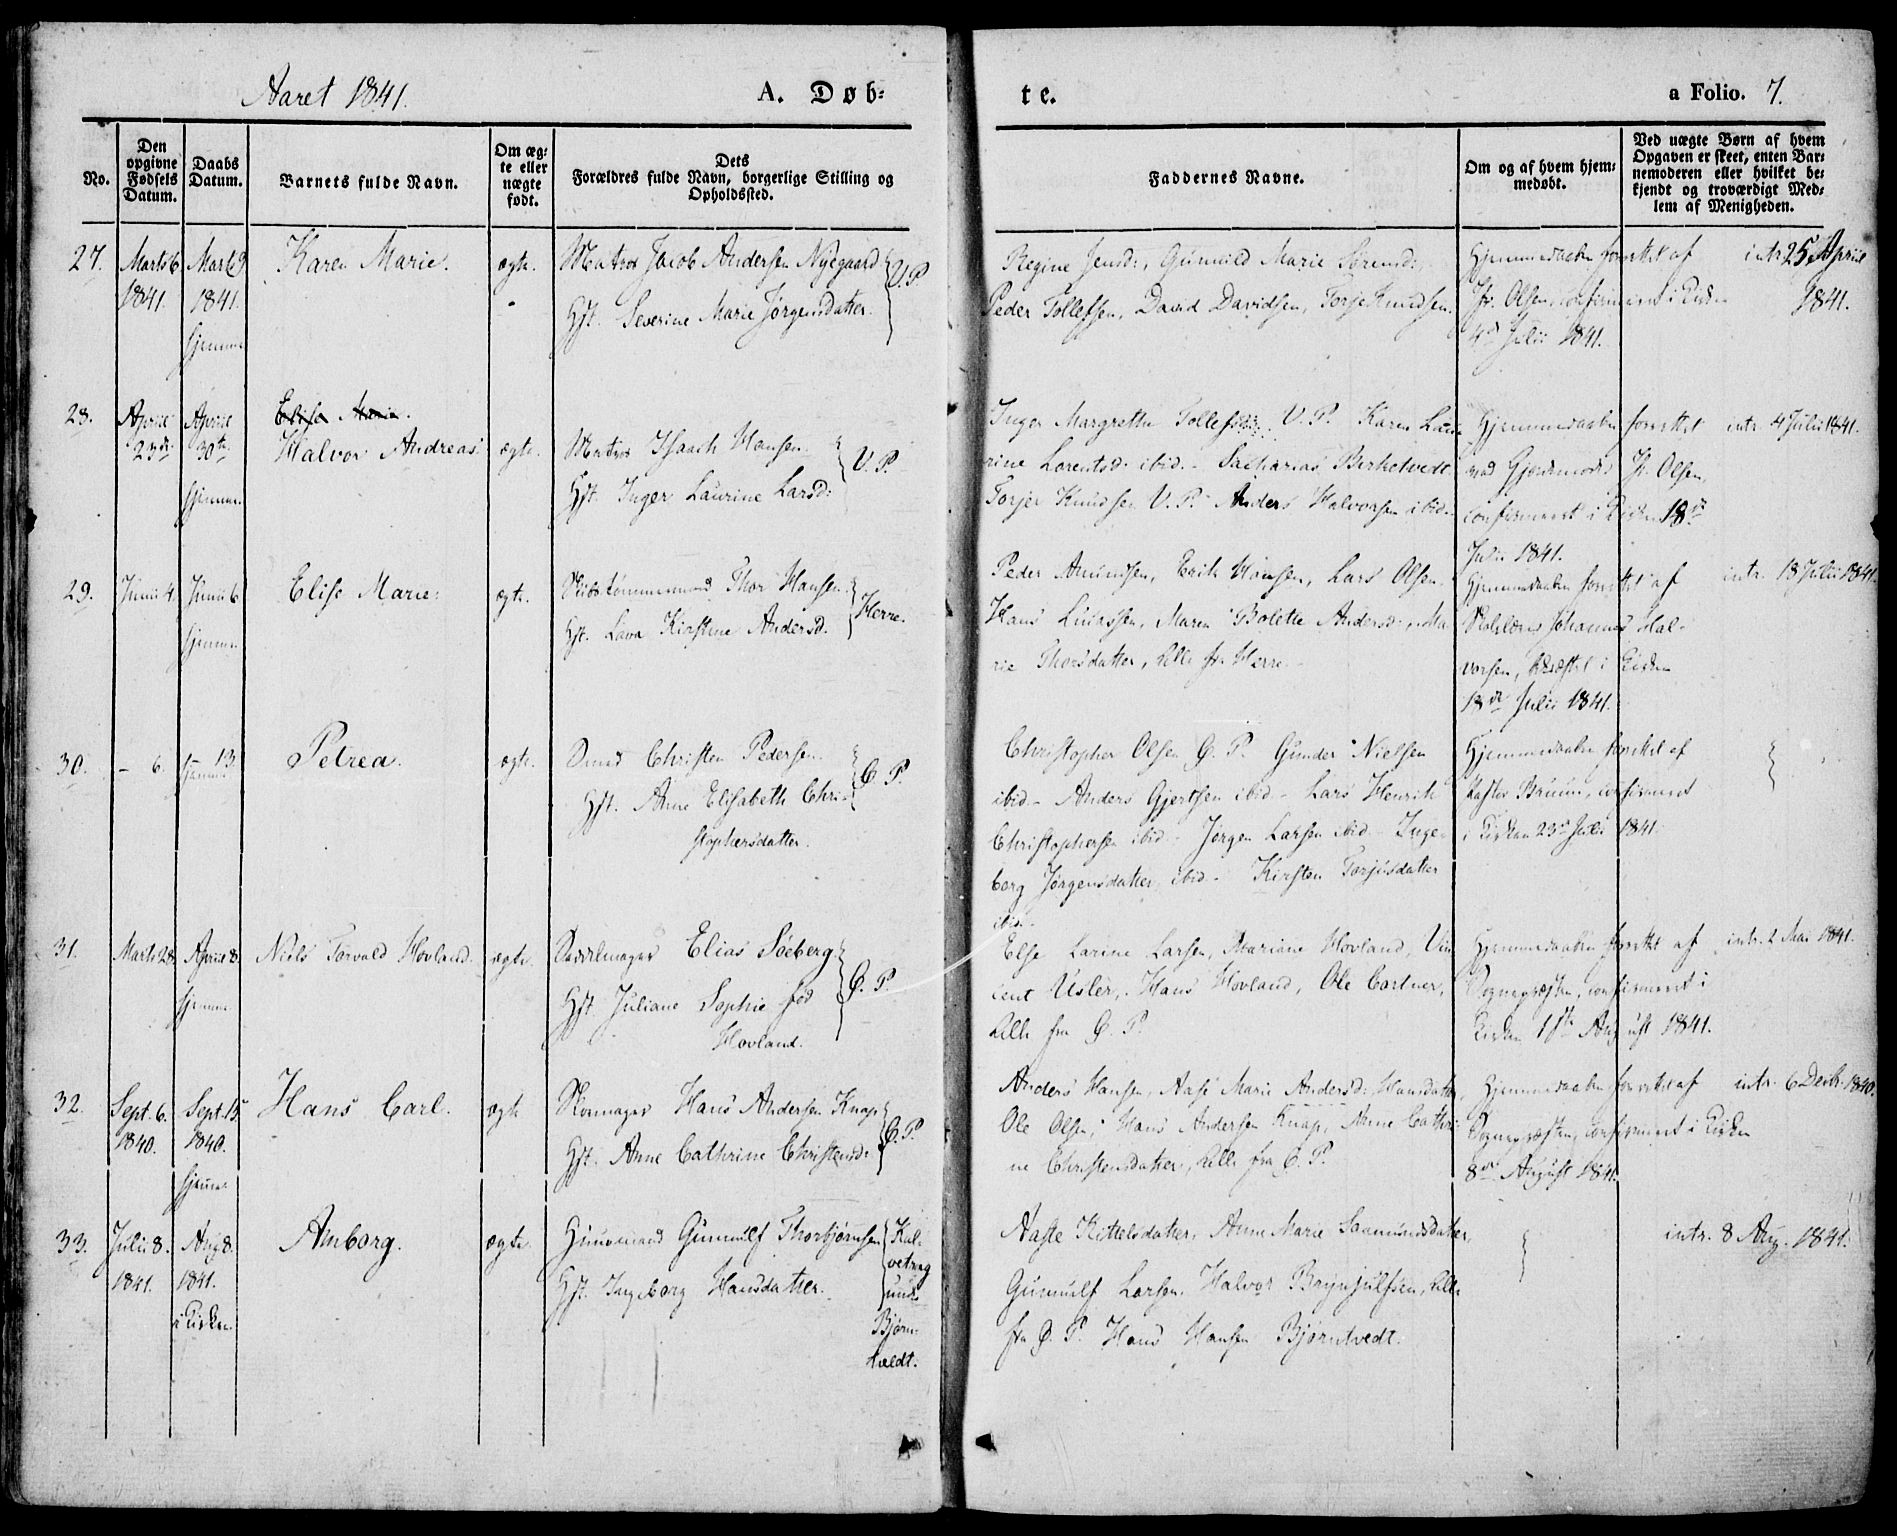 Aaret 1841.
A. Døb-
te.
a Folio. 7.
No.
Den opgivne Fødsels Datum.
Daabs Datum.
Barnets fulde Navn.
Om ægte eller uægte født.
Dets Forældres fulde Navn, borgerlige Stilling og Opholdssted.
Faddernes Navne.
Om og af hvem hjemmedøbt.
Ved uægte Børn af hvem Opgaven er skeet, enten Barnemoderen eller hvilket bekjendt og troværdigt Medlem af Menigheden.
27. Marts 6 Marts 9 Karen Marie. ægte. Matros Jacob Andersen Nyegaard V. P.
1841. 1841.
hjemme
Hst. Severine Marie Jørgensdatter.
Regine Jensd:, Gunnild Marie Sørensd:,
Peder Tollefsen, David Davidsen, Torje Knudsen.
Hjemmedaaben forrettet af
Jr. Olsen, confirmeret i Kirken
4de Julii 1841.
intr. 25 April
1841.
28. April April Elise Marie.
23de 30te Halvor Andreas. ægte. Matros Isaach Hansen V. P.
hjemme. Hst. Inger Laurine Larsd:
Inger Margrethe Tollefsd: V. P. Karen Lau-
rine Lorentsd. ibid. - Sacharias Birketvedt
Torjer Knudsen V. P. Anders Halvorsen ibid.
Hjemmedaaben forrettet
ved Jr. Olsen,
confirmeret i Kirken 18de
Julii 1841.
intr. 4 Julii 1841.
29. Junii 4 Junii 6 Elise Marie. ægte. Skibstømmermand Thor Hansen Herre.
hjemme Hst. Lava Kirstine Andersd.
Peder Amundsen, Erik Hansen, Lars Olsen.
Hans Lucassen, Maren Bolette Andersd., Ma-
rie Thorsdatter, alle fr. Herre.
Hjemmedaaben forrettet af
Skolelærer Johannes Hal-
vorsen, i Kirken
18de Julii 1841.
intr. 18 Julii 1841.
30. - 6. - 13. Petrea. ægte. Christen Pedersen. B. P.
hjemme
Hst. Anne Elisabeth Chri-
stophersdatter.
Christopher Olsen B. P. Gunder Nielsen
ibid - Anders Gjertsen ibid - Lars Henrik
Christophersen ibid - Jørgen Larsen ibid - Inge-
borg Jørgensdatter ibid - Kirsten Torjusdatter
ibid.
Hjemmedaaben forrettet af
Pastor Bruun, confirmeret
i Kirken 23de Julii 1841.
31. Marts 28 April 8 Niels Torvald Hovland. ægte. Sadelmager Elias Søeberg B. P.
hjemme Hst. Juliane Sophie fød
Hovland.
Else Larine Larsen, Mariane Hovland, Vin-
cent Usler, Hans Hovland, Ole Cortner,
alle fra B. P.
Hjemmedaaben forrettet af
Sognepræsten, confirmeret i
Kirken 1ste August 1841.
intr. 2 Mai 1841.
32. Sept. 6. Sept. 15 Hans Carl. ægte Skomager Hans Andersen Knap B. P.
1840. 1840.
hjemme
Hst. Anne Cathrine Christensd.
Anders Hansen, Aase Marie Andersd: Hansdatter,
Ole Olsen, Hans Andersen Knap, Anne Cathri-
ne Christensdatter, alle fra B. P.
Hjemmedaaben forrettet af
Sognepræsten, confirmeret i Kirken
8de August 1841.
intr. 6 Decbr. 1840.
33. Julii 8. Aug 8. Amborg. ægte. Huusmand Gunnulf Thorbjørnsen
1841. 1841.
i Kirken.
Hst. Ingeborg Hansdatter.
Kal-
vetrag
under
Bjørn-
tvedt.
Aaste Kittelsdatter, Anne Marie Saamundsdatter,
Gunnulf Larsen, Halvor Brynjulfsen, alle
fra B. P. Hans Hansen Bjørntvedt.
intr. 8 Aug. 1841.